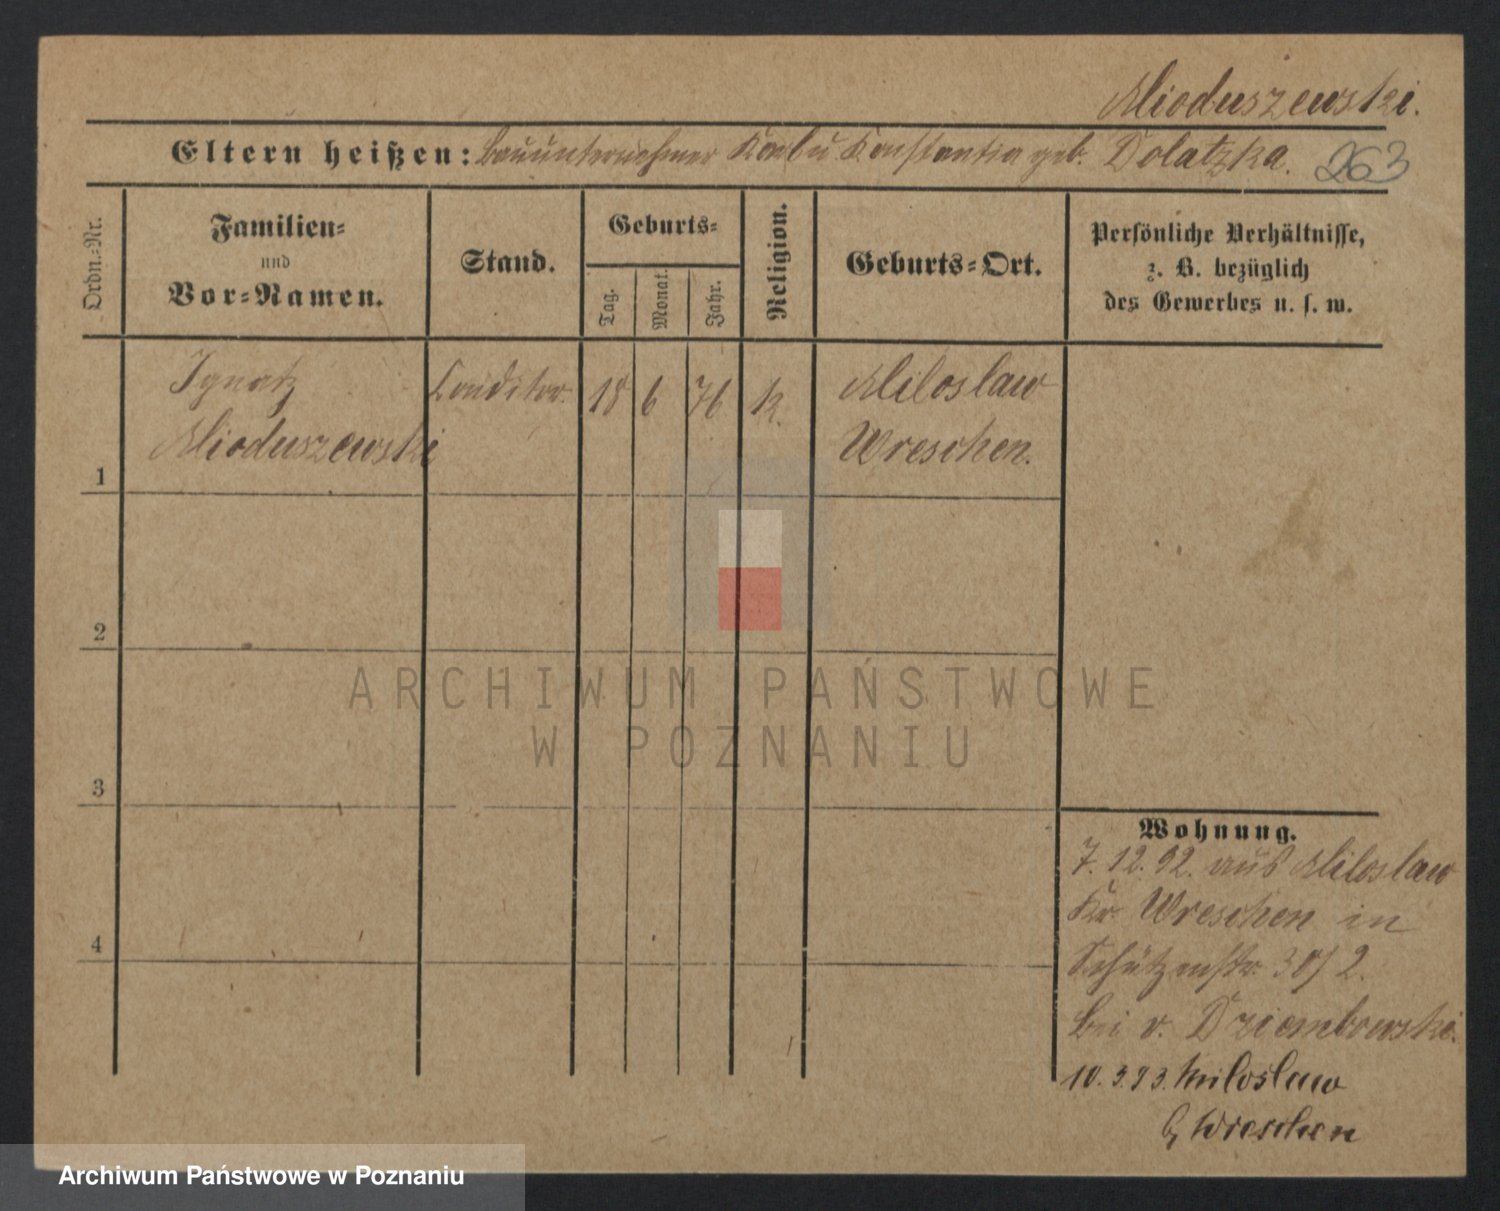 Mioduszewski.
Eltern heißen: Bauunternehmer u Konstantia geb. Dolatzka. 263
Ordn.-Nr.
Familien-
und
Vor-Namen.
Stand.
Geburts-
Tag.
Monat.
Jahr.
Religion.
Geburts-Ort.
Persönliche Verhältnisse,
z. B. bezüglich
des Gewerbes u. s. w.
Ignatz Conditor. 18 6 76 k. Miloslaw
1 Mioduszewski Wreschen.
2
3
4
ARCHIWUM PAŃSTWOWE
W POZNANIU
Wohnung.
7.12.92. aus Miloslaw
Kr. Wreschen in
Schützenstr. 30/2.
bei v. Dziembowski.
10.3.93. Miloslaw
Wreschen
Archiwum Państwowe w Poznaniu